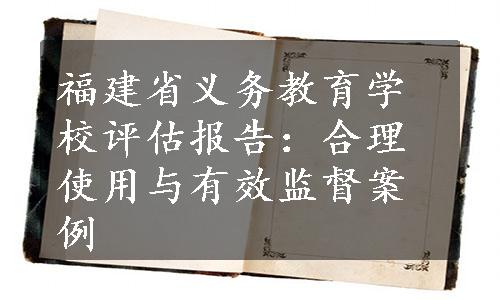 福建省义务教育学
校评估报告：合理
使用与有效监督案
例